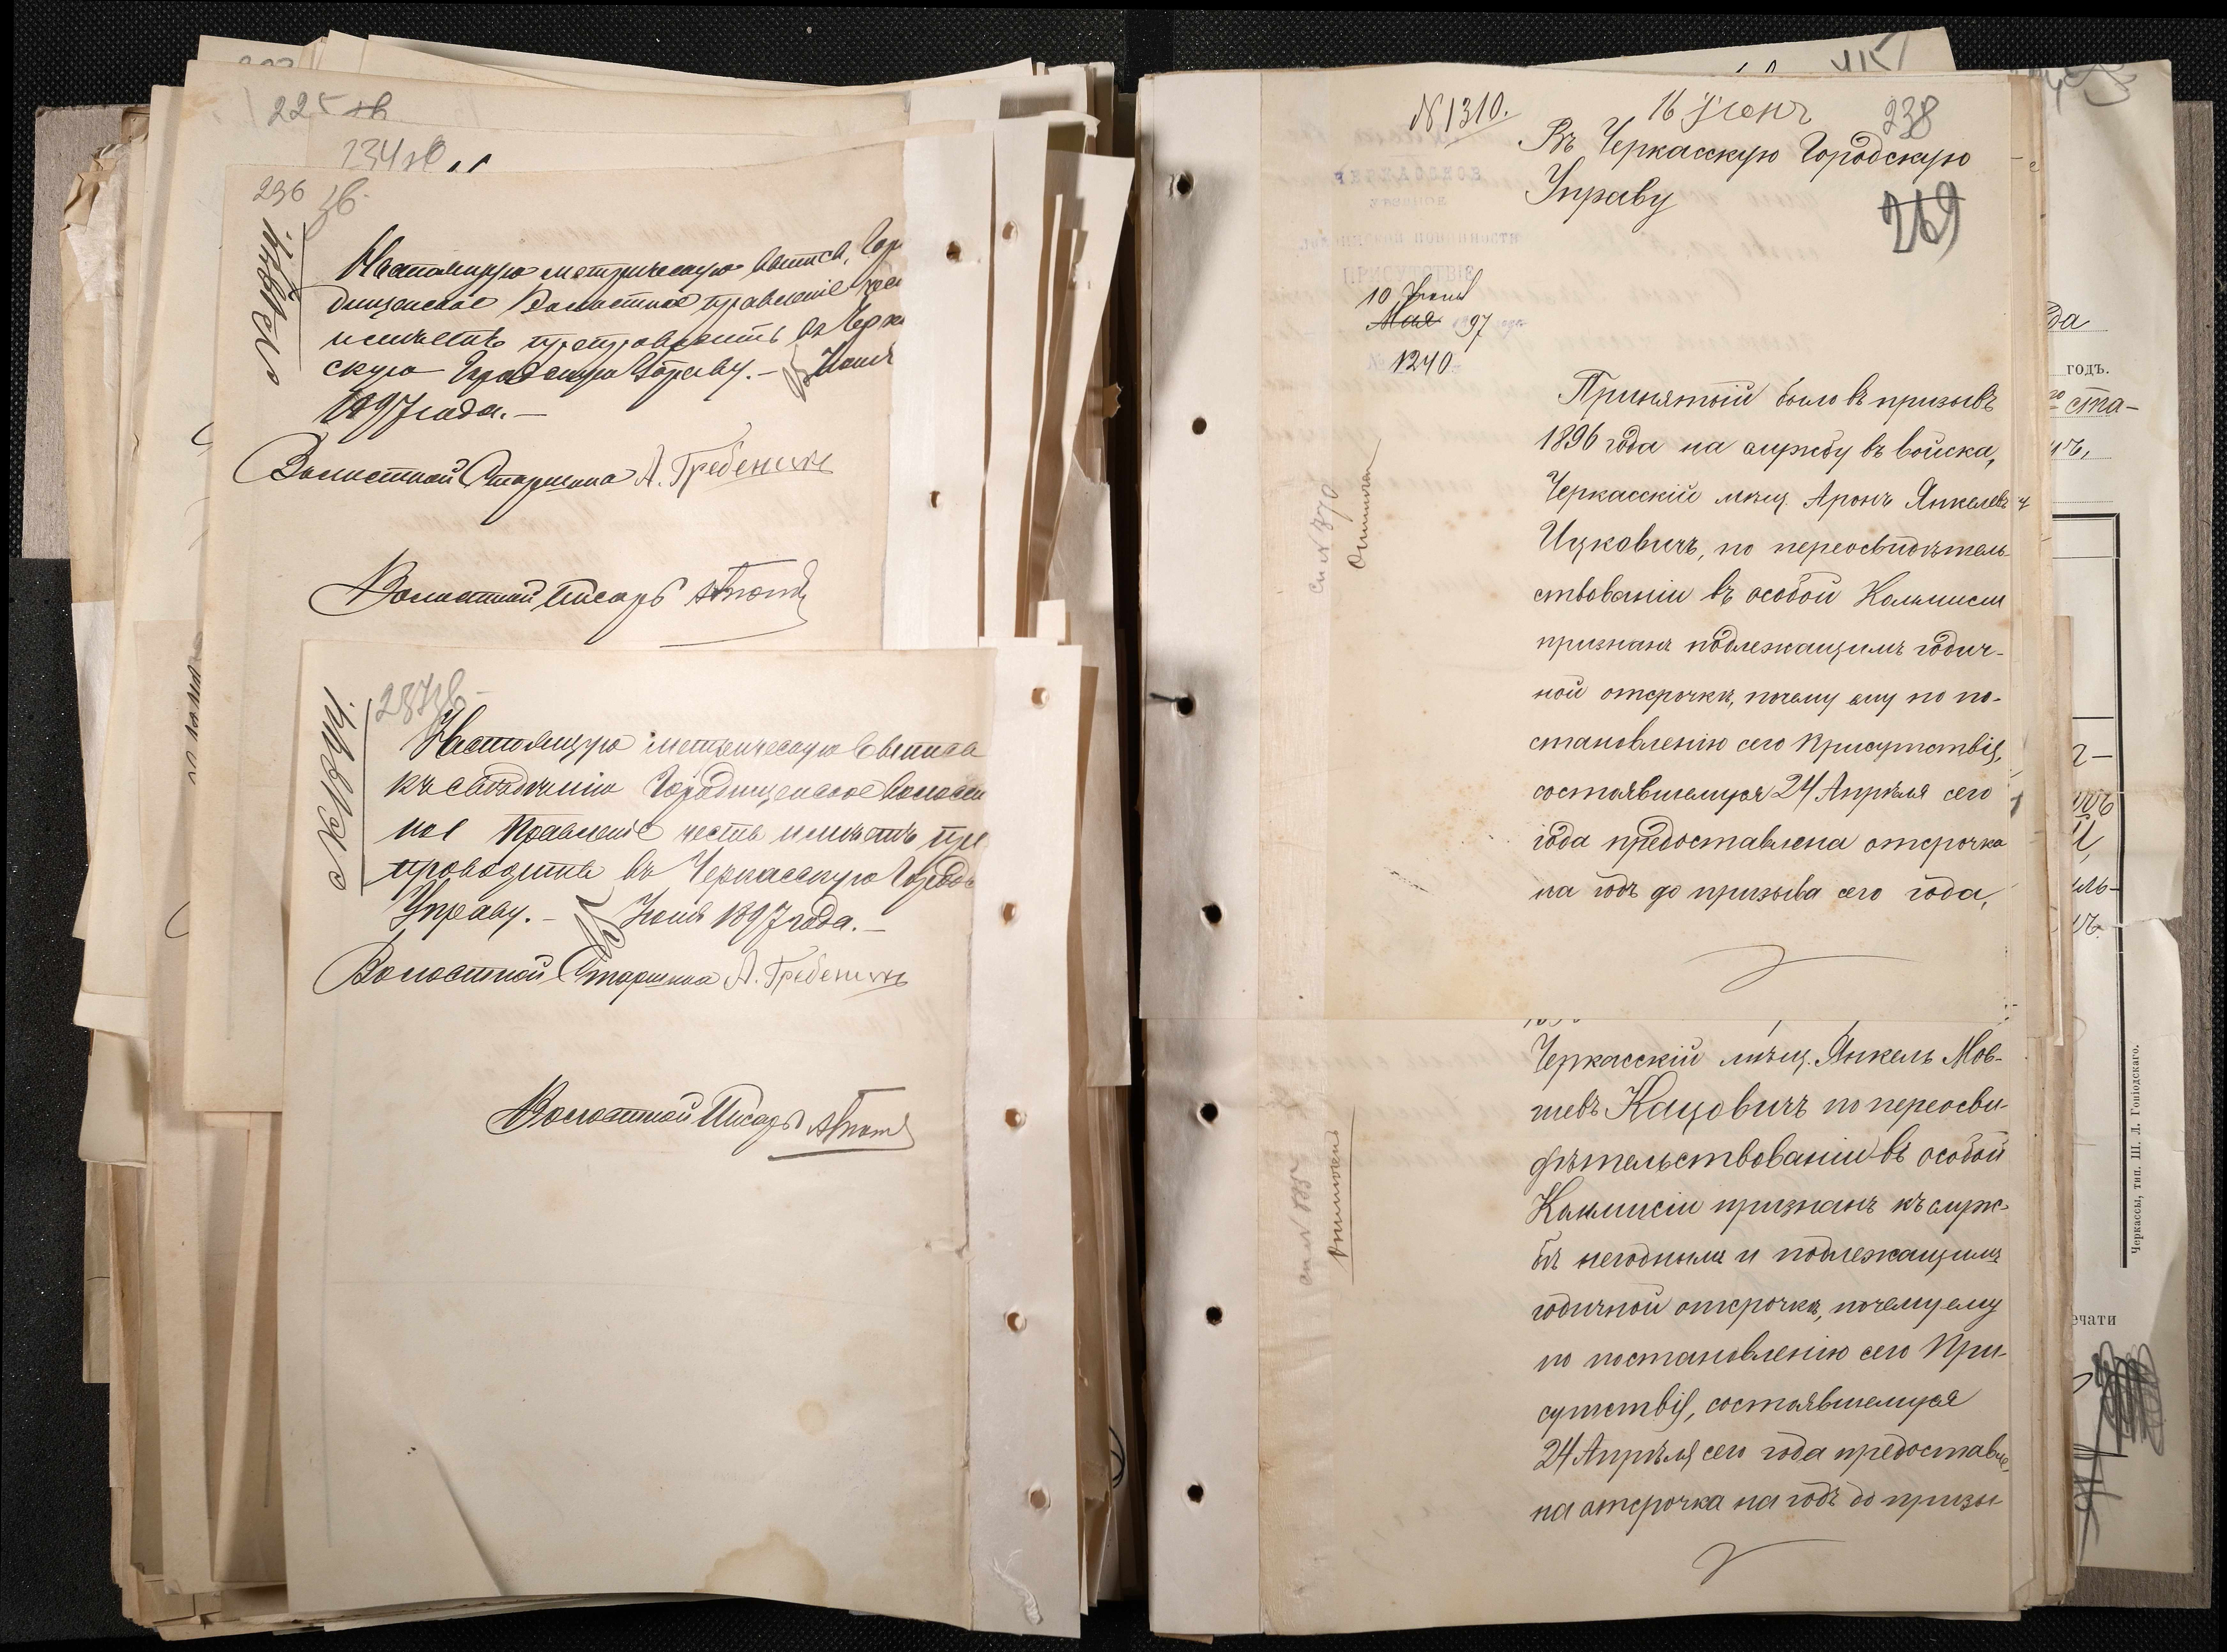 225 зв
234 зв
236 зв.
Настоящую метрическую выпись, Горо
дищенское Волостное правленіе чес
имѣетъ препроводить въ Черкас
скую Городскую Управу. – Іюня
1897 года. –
Волостной Старшина А. Гребеникъ
Волостной Писарь
237 зв –
Настоящую метрическую выпись
къ свѣдѣнію Городищенское Волост
ное Правленіе честь имѣетъ пре
проводить въ Черкасскую Городск
Управу. – Іюня 1897 года. –
Волостной Старшина А. Гребеникъ
Волостной Писарь
№ 1310.
16 Іюня
238
Въ Черкасскую Городскую
Управу
269
ЧЕРКАССКОЕ
УѢЗДНОЕ
ПРИСУТСТВІЕ
10 Іюня
Мая 1897 года
№ 1240
Принятый было въ призывъ
1896 года на службу въ войска,
Черкасскій мѣщ. Аронъ Янкелевъ
Ицковичъ, по переосвидѣтель-
ствованіи въ особой Коммисіи
признанъ подлежащимъ годич-
ной отсрочкѣ, почему ему по по-
становленію сего Присутствія,
состоявшемуся 24 Апрѣля сего
года предоставлена отсрочка
на годъ до призыва сего года,
Черкасскій мѣщ. Янкель Мов-
шевъ Кацовичъ по переосви-
дѣтельствованіи въ особой
Коммисіи признанъ къ служ-
бѣ негоднымъ и подлежащимъ
годичной отсрочкѣ, почему ему
по постановленію сего При-
сутствія, состоявшемуся
24 Апрѣля сего года предоставле-
на отсрочка на годъ до призы
годъ.
ста-
ечати
Черкассы, тип. Ш. Л. Гоніодскаго.